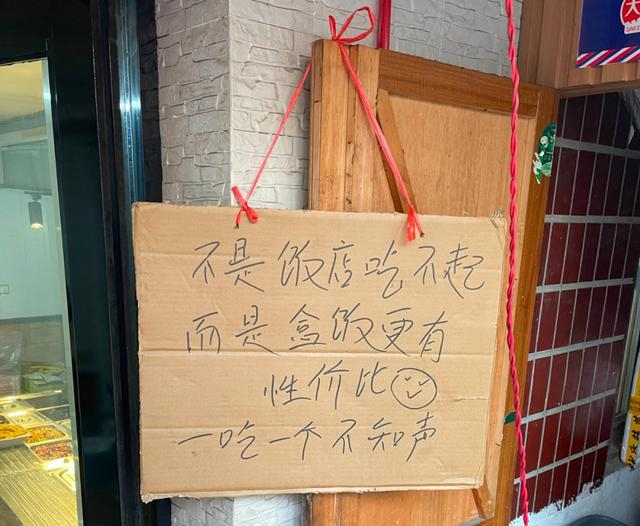 不是饭店吃不起
而是盒饭更有
性价比
一吃一个不知声
大
SINCE